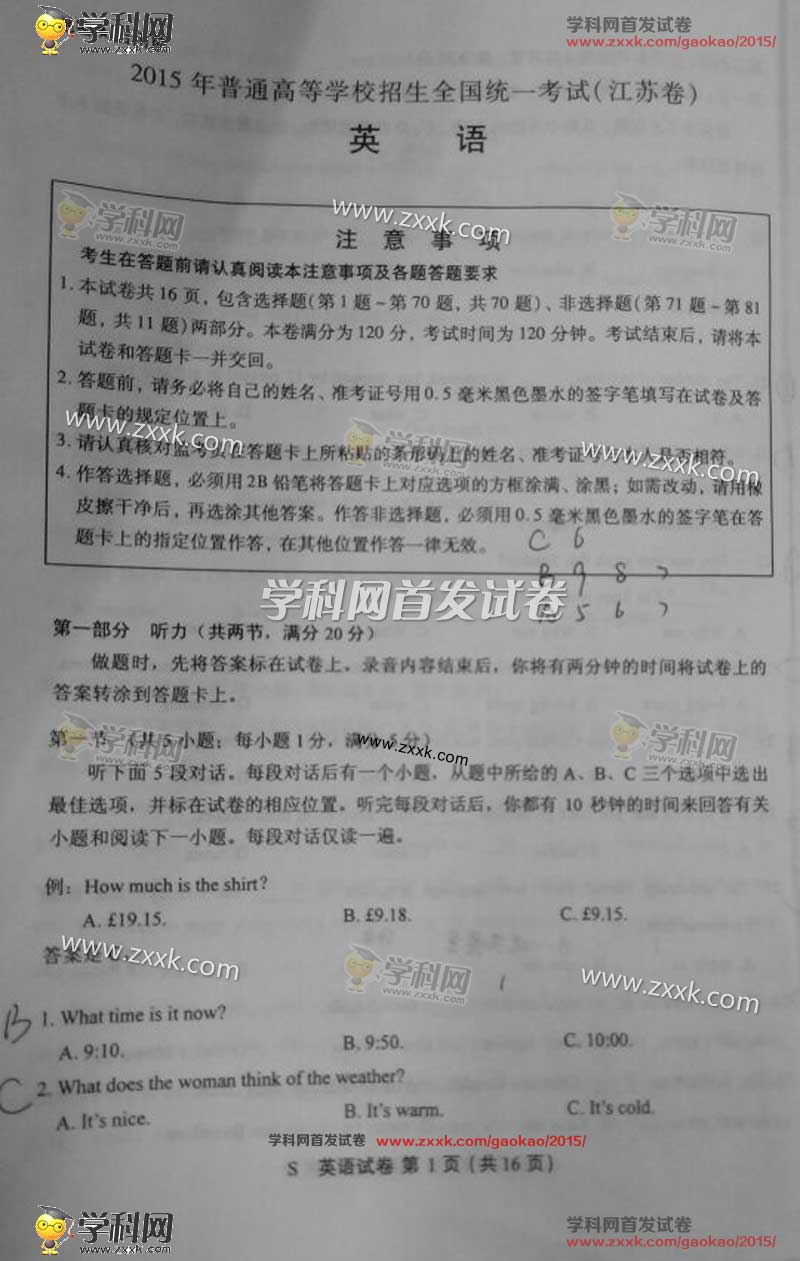 学科网
www.zxxk.com
学科网首发试卷
www.zxxk.com/gaokao/2015/
2015 年普通高等学校招生全国统一考试(江苏卷)
英 语
学科网
www.zxxk.com
学科网
注 意 事 项
考生在答题前请认真阅读本注意事项及各题答题要求
1. 本试卷共 16 页，包含选择题(第 1 题 ~ 第 70 题，共 70 题)、非选择题(第 71 题 ~ 第 81
题，共 11 题)两部分。本卷满分为 120 分，考试时间为 120 分钟。考试结束后，请将本
试卷和答题卡一并交回。
2. 答题前，请务必将自己的姓名、准考证号用 0.5 毫米黑色墨水的签字笔填写在试卷及答
题卡的规定位置上。
www.zxxk.com
学科网
www.zxxk.com
3. 请认真核对监考员在答题卡上所粘贴的条形码上的姓名、准考证号 人是否相符。
4. 作答选择题，必须用 2B 铅笔将答题卡上对应选项的方框涂满、涂黑；如需改动，请用橡
皮擦干净后，再选涂其他答案。作答非选择题，必须用 0.5 毫米黑色墨水的签字笔在答
题卡上的指定位置作答，在其他位置作答一律无效。
C 6
B 9 8 7
5 6 7
学科网首发试卷
第一部分 听力（共两节，满分 20 分）
做题时，先将答案标在试卷上。录音内容结束后，你将有两分钟的时间将试卷上的
答案转涂到答题卡上。
学科网
www.zxxk.com
学科网
第一节 （共 5 小题；每小题 1 分，满 5 分）
听下面 5 段对话。每段对话后有一个小题，从题中所给的 A、B、C 三个选项中选出
最佳选项，并标在试卷的相应位置。听完每段对话后，你都有 10 秒钟的时间来回答有关
小题和阅读下一小题。每段对话仅读一遍。
例：How much is the shirt?
A. £19.15.
B. £9.18.
C. £9.15.
答案是
www.zxxk.com
学科网
www.zxxk.com
B 1. What time is it now?
A. 9:10.
B. 9:50.
C. 10:00.
C 2. What does the woman think of the weather?
A. It's nice.
B. It's warm.
C. It's cold.
学科网首发试卷 www.zxxk.com/gaokao/2015/
S 英语试卷 第 1 页（共 16 页）
学科网
www.zxxk.com
学科网首发试卷
www.zxxk.com/gaokao/2015/